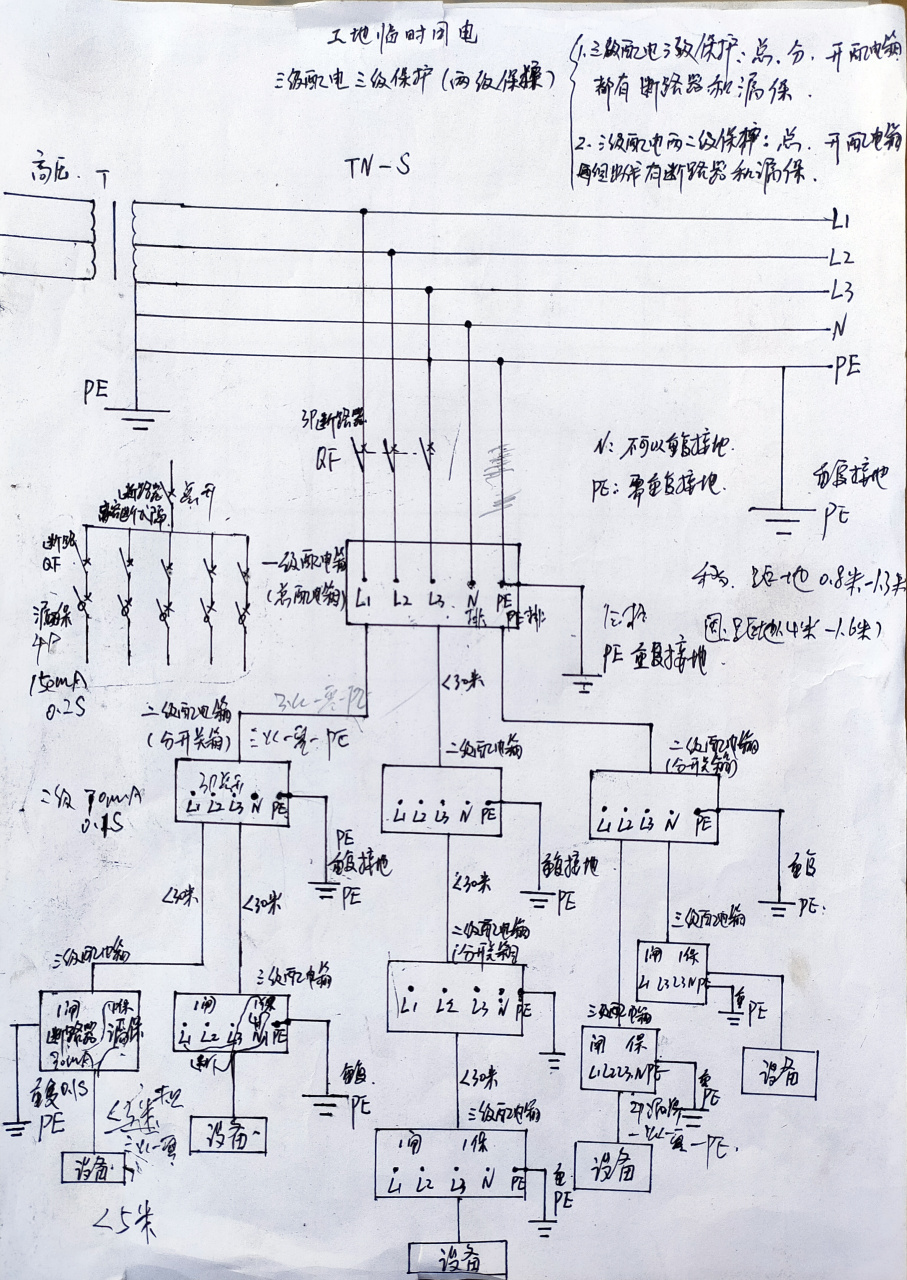 工地临时用电
三级配电三级保护(两级保护)
1.三级配电三级保护:总.分.开配电箱
都有断路器和漏保.
2.三级配电两二级保护:总.开配电箱
有断路器和漏保.
高压. T
TN-S
L1
L2
L3
N
PE
PE
3P断路器
QF
N:不可以重复接地.
PE:需重复接地.
重复接地
PE
断路器 总开
断路器
QF
漏保
4P
150mA
0.2S
一级配电箱
(总配电箱)
L1 L2 L3 N PE
排 PE排
PE 重复接地.
距地 0.8米-1.3米
固:距地1.4米-1.6米)
<30米
二级配电箱
(分开关箱)
PE
二级配电箱
二级配电箱
(分开关箱)
3P总开
L1 L2 L3 N PE
L1 L2 L3 N PE
L1 L2 L3 N PE
二级 70mA
0.1S
PE
重复接地
PE
重复接地
PE
重复
PE.
<30米
<30米
<30米
二级配电箱
(分开关箱)
三级配电箱
三级配电箱
三级配电箱
1闸 1保
断路器 漏保
30mA
0.1S
重复
PE
1闸 1保
L1 L2 L3 N PE
重复
PE
L1 L2 L3 N PE
闸 1保
L1 L2 L3 N PE
重
PE
三级配电箱
闸 保
L1 L2 L3.N PE
重
PE
2P漏保
PE.
设备
<30米
三级配电箱
1闸 1保
L1 L2 L3 N PE
重
PE
设备.
设备.
设备
设备
<5米